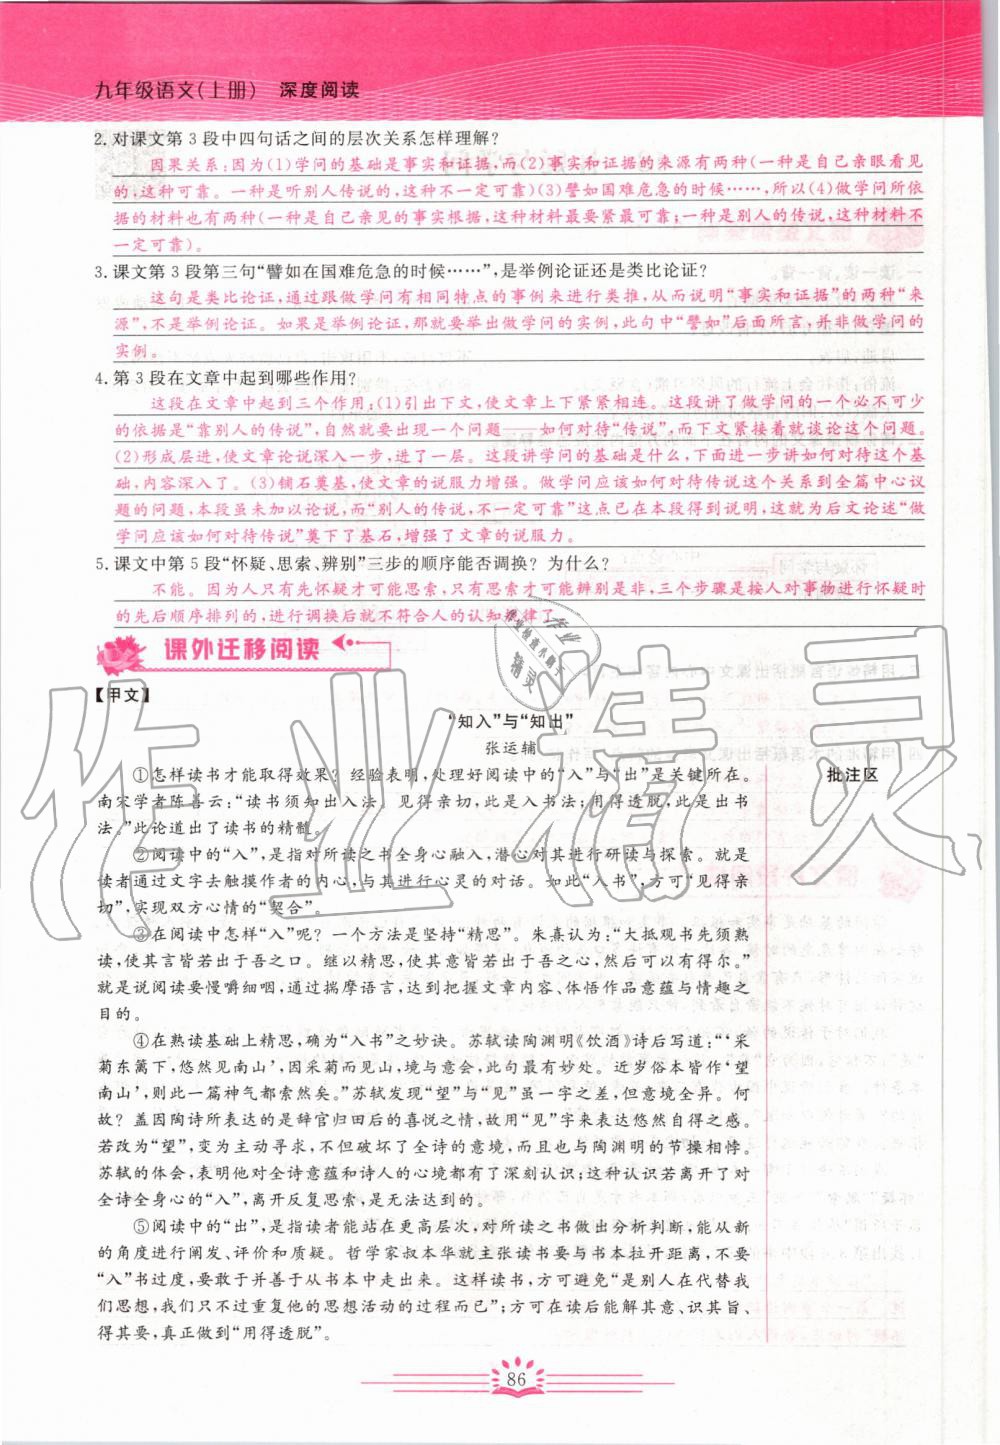 九年级语文(上册) 深度阅读
2. 对课文第 3 段中四句话之间的层次关系怎样理解?
因果关系:因为(1)学问的基础是事实和证据,而(2)事实和证据的来源有两种(一种是自己亲眼看见
的,这种可靠。一种是听别人传说的,这种不一定可靠)(3)譬如国难危急的时候……,所以(4)做学问所依
据的材料也有两种(一种是自己亲见的事实根据,这种材料最要紧最可靠;一种是别人的传说,这种材料不
一定可靠)。
3. 课文第 3 段第三句“譬如在国难危急的时候……”,是举例论证还是类比论证?
这句是类比论证,通过跟做学问有相同特点的事例来进行类推,从而说明“事实和证据”的两种“来
源”,不是举例论证。如果是举例论证,那就要举出做学问的实例,此句中“譬如”后面所言,并非做学问的
实例。
4. 第 3 段在文章中起到哪些作用?
这段在文章中起到三个作用:(1)引出下文,使文章上下紧紧相连。这段讲了做学问的一个必不可少
的依据是“靠别人的传说”,自然就要出现一个问题——如何对待“传说”,而下文紧接着就谈论这个问题。
(2)形成层进,使文章论说深入一步,进了一层。这段讲学问的基础是什么,下面进一步讲如何对待这个基
础,内容深入了。(3)铺石奠基,使文章的说服力增强。做学问应该如何对待传说这个关系到全篇中心议
题的问题,本段虽未加以论说,而“别人的传说,不一定可靠”这点已在本段得到说明,这就为后文论述“做
学问应该如何对待传说”奠下了基石,增强了文章的说服力。
5. 课文中第 5 段“怀疑、思索、辨别”三步的顺序能否调换?为什么?
不能。因为人只有先怀疑才可能思索,只有思索才可能辨别是非,三个步骤是按人对事物进行怀疑时
的先后顺序排列的,进行调换就不符合人的认知规律了。
课外迁移阅读
【甲文】
“知入”与“知出”
张运辅
①怎样读书才能取得效果?经验表明,处理好阅读中的“入”与“出”是关键所在。
批注区
南宋学者陈善云:“读书须知出入法。见得亲切,此是入书法;用得透脱,此是出书
法。”此论道出了读书的精髓。
②阅读中的“入”,是指对所读之书全身心融入,潜心对其进行研读与探索。就是
读者通过文字去触摸作者的内心,与其进行心灵的对话。如此“入书”,方可“见得亲
切”,实现双方心情的“契合”。
③在阅读中怎样“入”呢?一个方法是坚持“精思”。朱熹认为:“大抵观书先须熟
读,使其言皆若出于吾之口。继以精思,使其意皆若出于吾之心,然后可以有得尔。”
就是说阅读要慢嚼细咽,通过揣摩语言,达到把握文章内容、体悟作品意蕴与情趣之
目的。
④在熟读基础上精思,确为“入书”之妙诀。苏轼读陶渊明《饮酒》诗后写道:“‘采
菊东篱下,悠然见南山’,因采菊而见山,境与意会,此句最有妙处。近岁俗本皆作‘望
南山’,则此一篇神气都索然矣。”苏轼发现“望”与“见”虽一字之差,但意境全异。何
故?盖因陶诗所表达的是辞官归田后的喜悦之情,故用“见”字来表达悠然自得之感。
若改为“望”,变为主动寻求,不但破坏了全诗的意境,而且也与陶渊明的节操相悖。
苏轼的体会,表明他对全诗意蕴和诗人的心境都有了深刻认识;这种认识若离开了对
全诗全身心的“入”,离开反复思索,是无法达到的。
⑤阅读中的“出”,是指读者能站在更高层次,对所读之书做出分析判断,能从新
的角度进行阐发、评价和质疑。哲学家叔本华就主张读书要与书本拉开距离,不要
“入”书过度,要敢于并善于从书本中走出来。这样读书,方可避免“是别人在代替我
们思想,我们只不过重复他的思想活动的过程而已”;方可在读后能解其意、识其旨、
得其要,真正做到“用得透脱”。
86
作业精灵